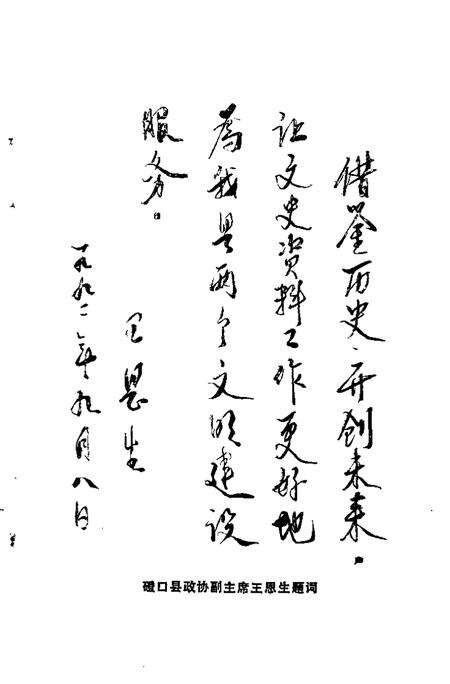 借鉴历史、开创未来。
让文史资料工作更好地
为我县两个文明建设
服务。
王恩生
一九九二年九月八日
磴口县政协副主席王恩生题词